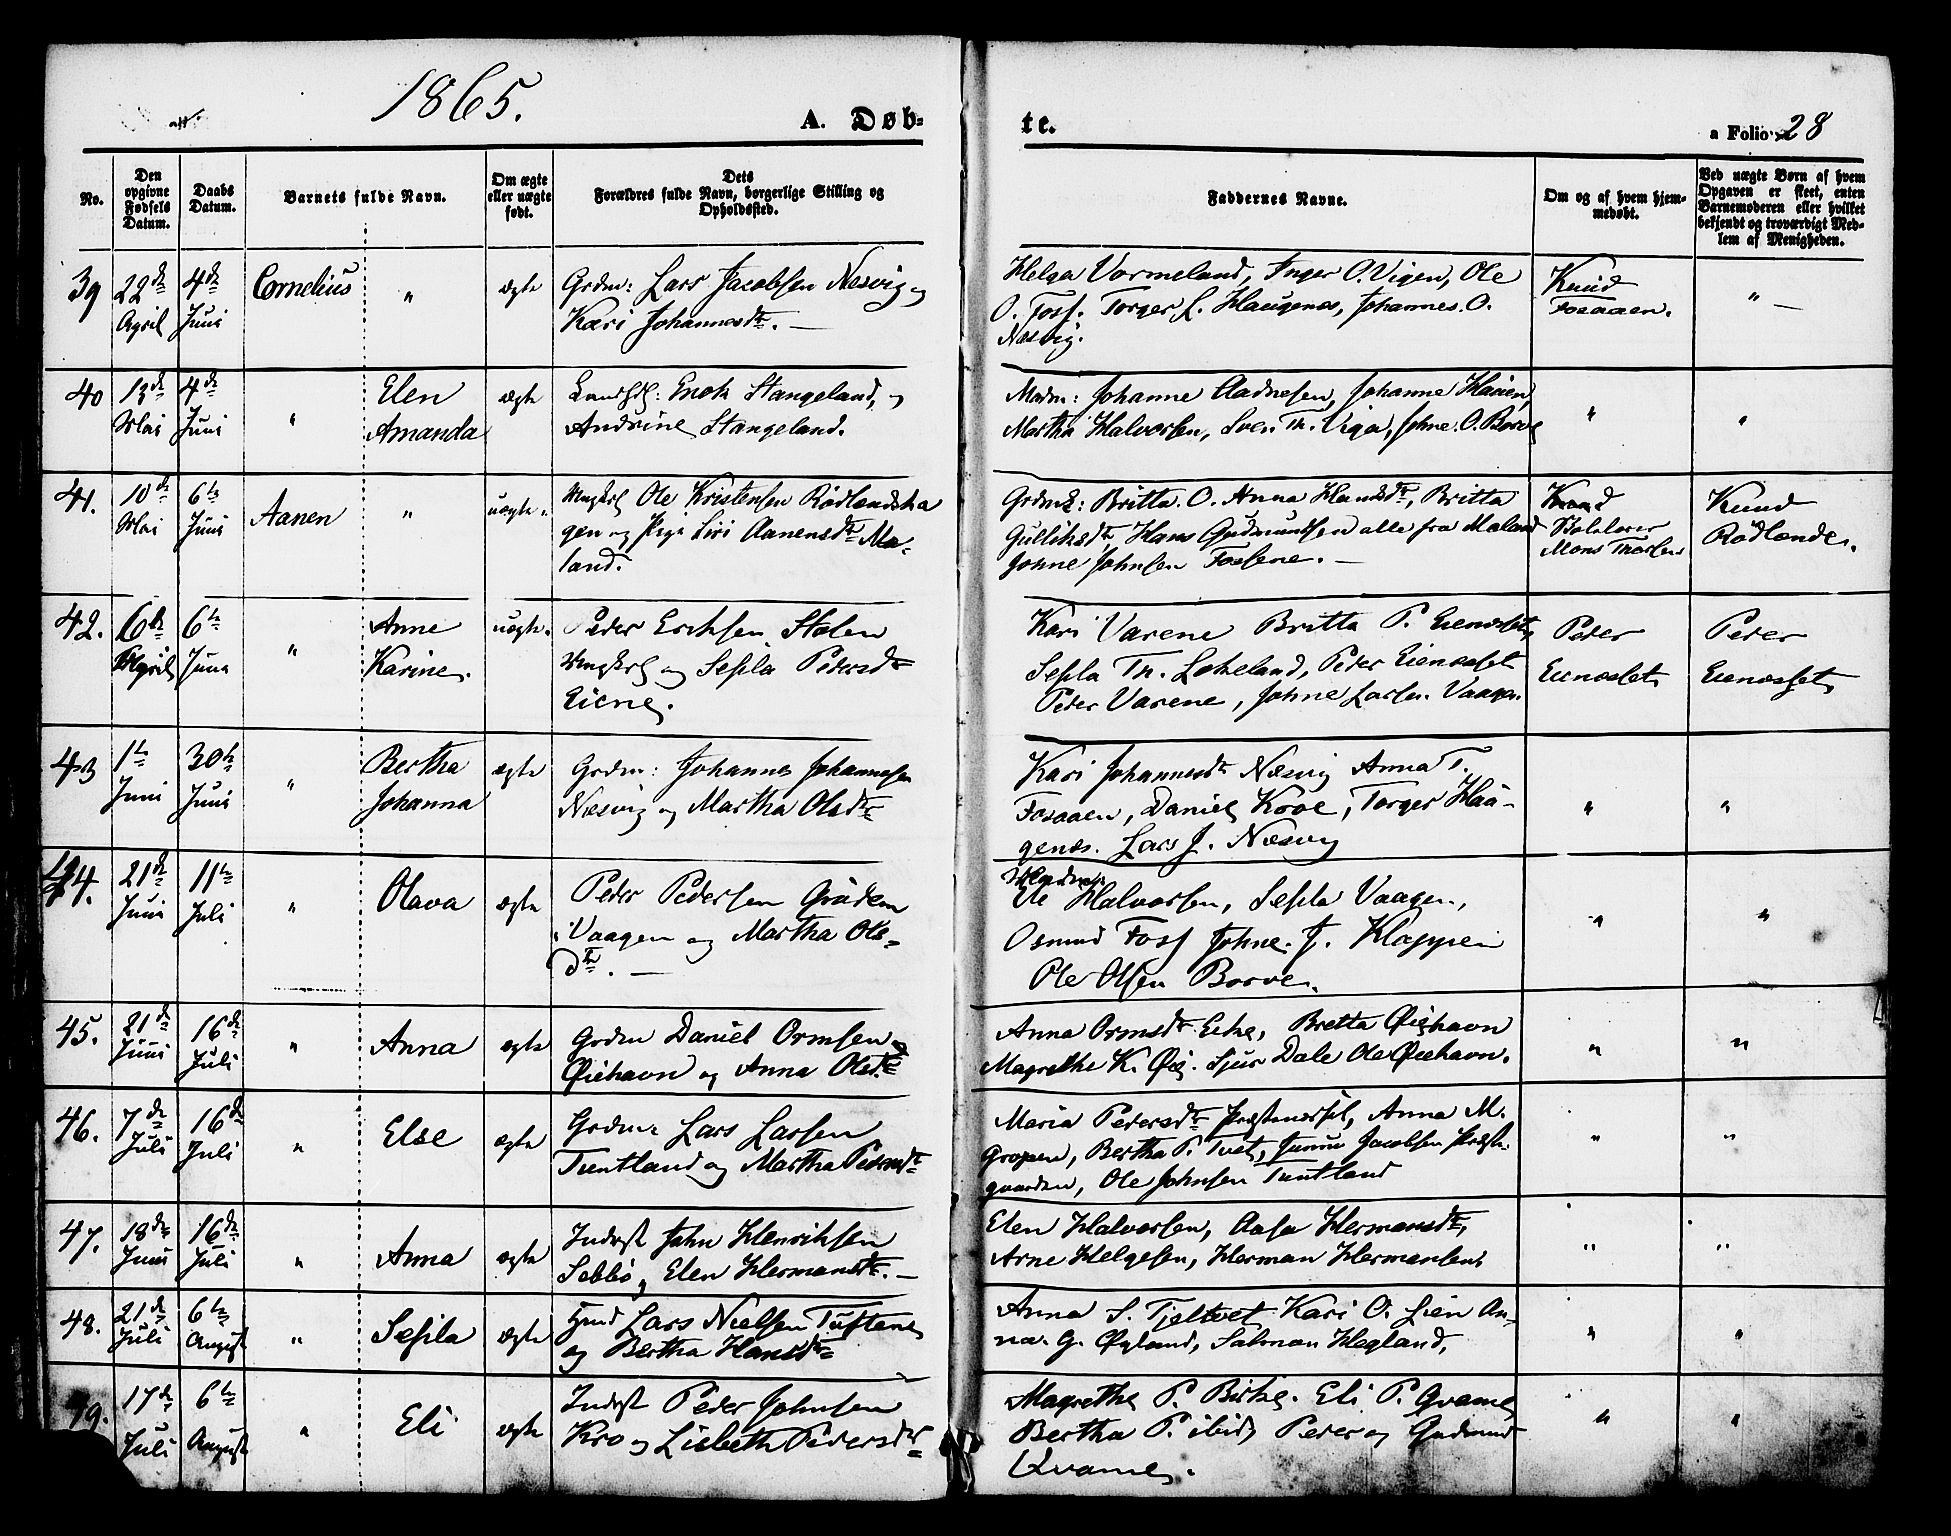 1865.
A. Døb-
te.
a Folio 28
No.
Den opgivne Fødsels Datum.
Daabs Datum.
Barnets fulde Navn.
Om ægte eller uægte født.
Dets Forældres fulde Navn, borgerlige Stilling og Opholdssted.
Faddernes Navne.
Om og af hvem hjemmedøbt.
Ved uægte Børn af hvem Opgaven er skeet, enten Barnemoderen eller hvilket bekjendt og troværdigt Medlem af Menigheden.
39 22de April 4de Juni Cornelius " ægte
Grdm: Lars Jacobsen Nesvig og
Kari Johannesdtr. —
Helga Vormeland, Inger O. Vigen, Ole
O. Foss. Torger L. Haugenes, Johannes O.
Næsvig.
Knud
Fosaaen.
" —
40 13de Mai 4de Juni " Elen
Amanda ægte
Landhdl: Enok Stangeland, og
Andrine Stangeland.
Madm: Johanne Aadnesen, Johanne Haaen,
Martha Halvorsen, Sven Th. Viga, Johne O. Borve
" "
41. 10de Mai 6te Juni Aanen " uægte
Ungkrl Ole Kristensen Rødlandsha
gen og Pige Siri Aanensdtr Ma-
land.
Grdmk: Britta O. Anna Hansdtr, Britta
Gulliksdtr, Hans Gudmundsen alle fra Maland
Johne Johnsen Fossene. —
Skolelærer
Mons Thorsen
Knud
Rødlande.
42. 6te April 6te Juni " Anne
Karine. uægte.
Peder Eriksen Stølen
Ungkrl og Sesila Pedersdtr
Eiene.
Kari Varene Britta P. Eienesset,
Sesila Th. Lokeland, Peder Eienesset
Peder Varene, Johne Larsen Vaagen.
Peder
Eienesset,
Peder
Eienesset,
43 1te Juni 30te Juni " Bertha
Johanna ægte
Grdm: Johannes Johannesen
Næsvig og Martha Olsdtr
Kari Johannesdtr Næsvig Anna T.
Fosaaen, Daniel Krove, Torger Hau-
genes. Lars J. Næsvig
" "
44. 21de Juni 11te Juli " Olava ægte
Peder Pedersen Grødem
i Vaagen og Martha Ols-
dtr. —
Halvorsen, Sesila Vaagen,
Osmund Foss Johne J. Klappen
Ole Olsen Borve.
" "
45. 21de Juni 16de Juli " Anna ægte
Grdm Daniel Ormsen
Øiehavn og Anna Olsdtr
Anna Ormsdtr Eike, Bretta Øiehavn
Magrethe K. Øie. Sjur Dale Ole Øiehavn.
" "
46. 7de Juli 16de Juli " Else ægte
Grdm: Lars Larsen
Tuntland og Martha Pedersdtr
Maria Pedersdtr Præstmarken, Anna M.
Gropen, Bertha P. Tvet, Jacobsen Præst-
gaarden, Ole Johnsen Tuntland
" "
47. 18de Juni 16de Juli " Anna ægte
Inderst John Henriksen
Sebbø, Elen Hermansdtr. —
Elen Halvorsen, Aasa Hermansdtr,
Arne Helgesen, Herman Hermansen.
" "
48. 21de Juli 6te August " Sesila ægte
Hmd Lars Nielsen Tuftene
og Bertha Hansdtr
Anna S. Tjeltvet Kari O. Lien An-
na G. Øyland, Salmon Hegland,
" "
49. 17de Juli 6te August " Eli ægte
Inderst Peder Johnsen
Kro og Lisbeth Pedersdtr
Magrethe P. Birke. Eli P. Qvame
Bertha P. ibid, Peder og Gudmund
Qvame.
" "